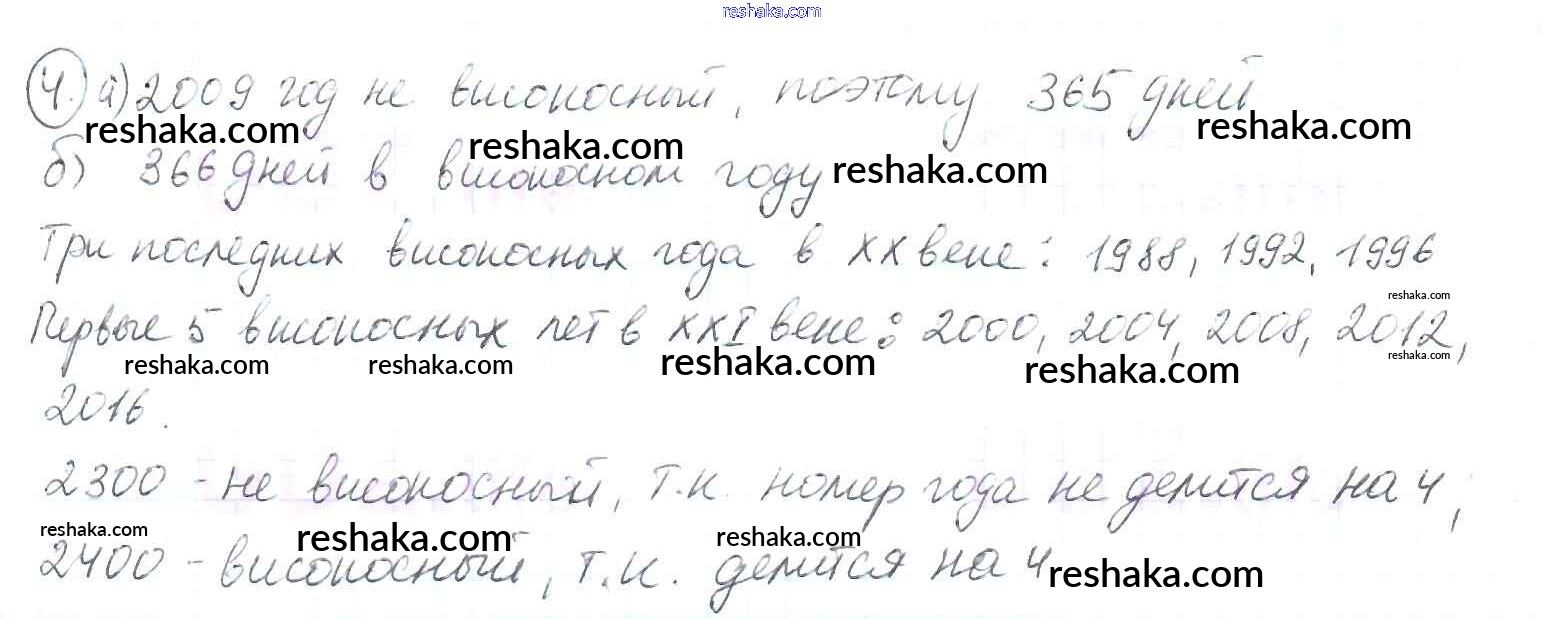 reshaka.com
4. а) 2009 год не високосный, поэтому 365 дней
reshaka.com reshaka.com reshaka.com
б) 366 дней в високосном году reshaka.com
Три последних високосных года в XX веке: 1988, 1992, 1996
reshaka.com
Первые 5 високосных лет в XXI веке: 2000, 2004, 2008, 2012,
reshaka.com reshaka.com reshaka.com reshaka.com reshaka.com
2016.
2300 - не високосный, т.к номер года не делится на 4;
reshaka.com reshaka.com reshaka.com
2400 - високосный, т.к. делится на 4 reshaka.com